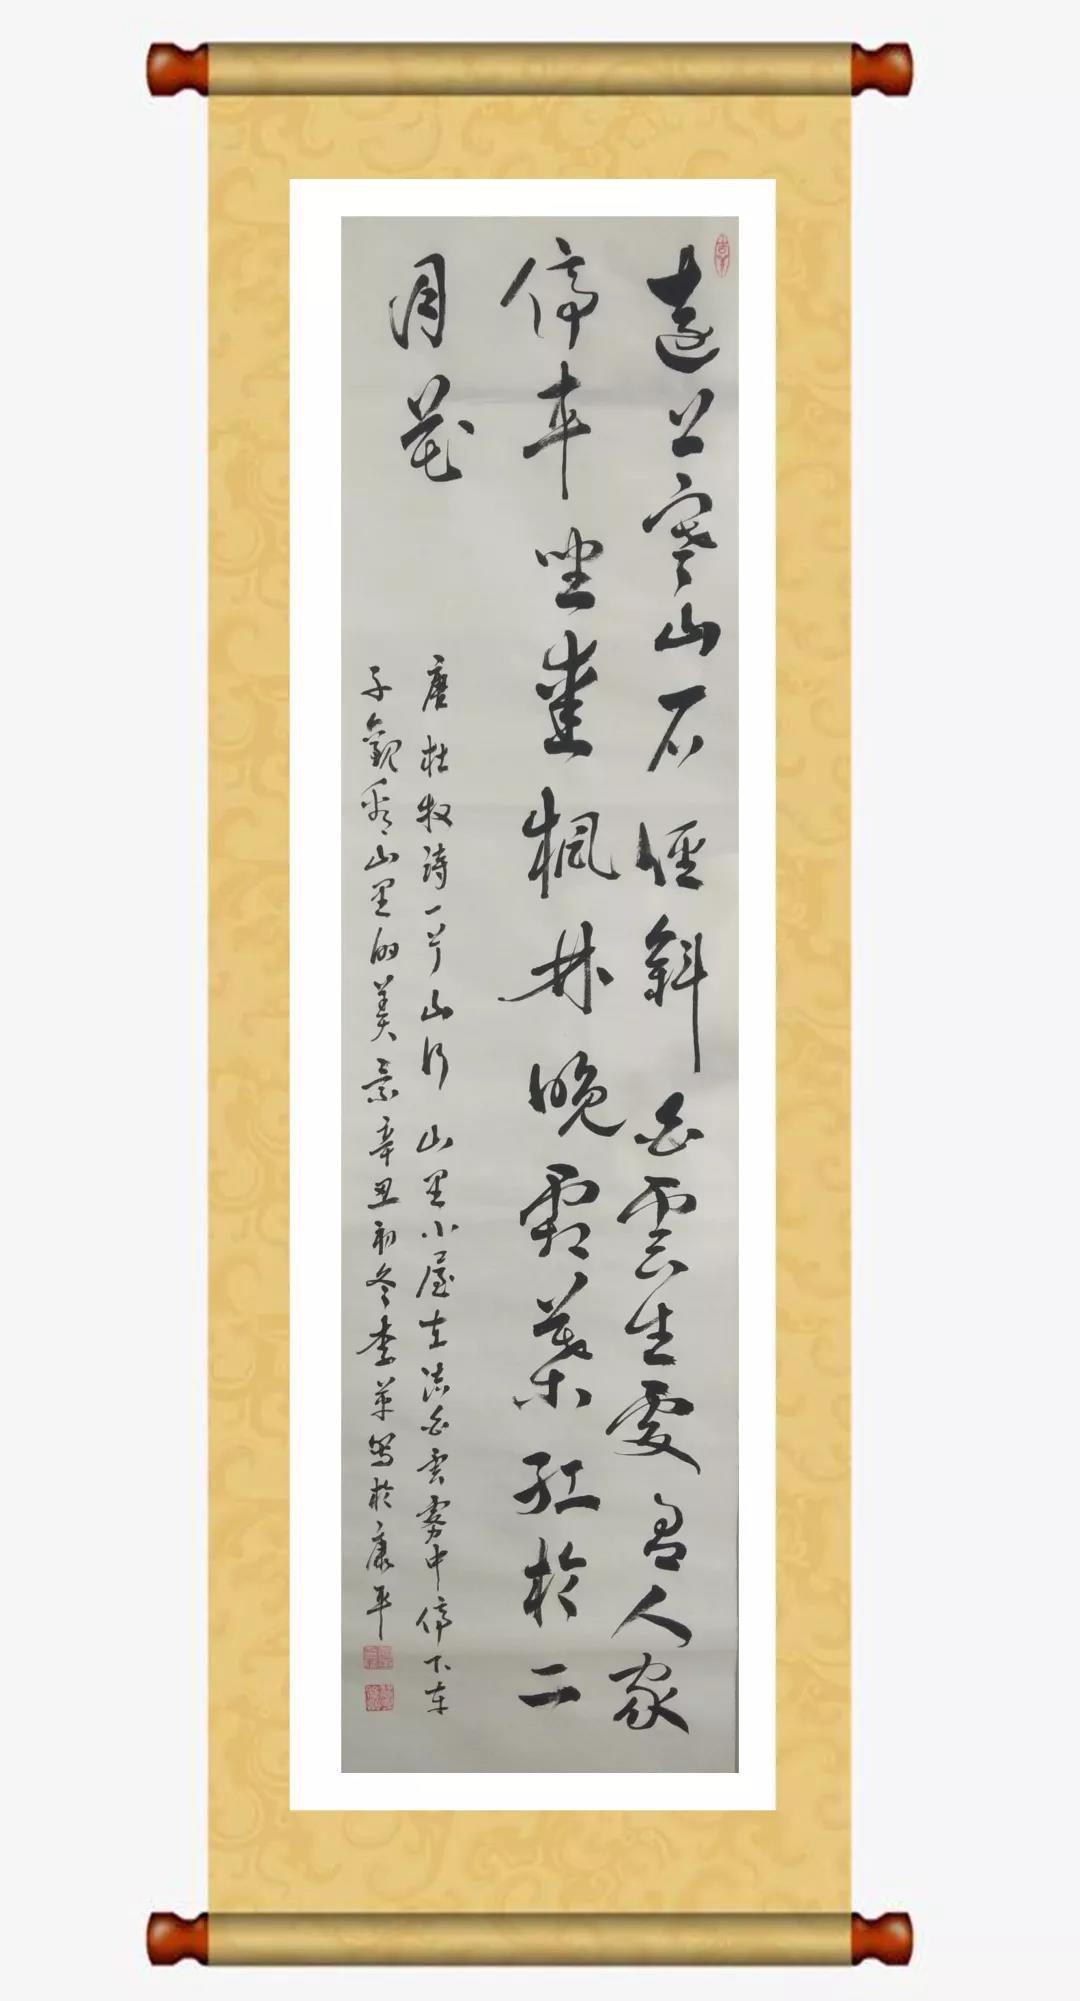 遠上寒山石徑斜白雲生處有人家
停車坐愛楓林晚霜葉紅於二
月花
唐杜牧詩一首山行 山里小屋在白雲霧中停下车
子觀看山里的美景辛丑初冬李写於康平